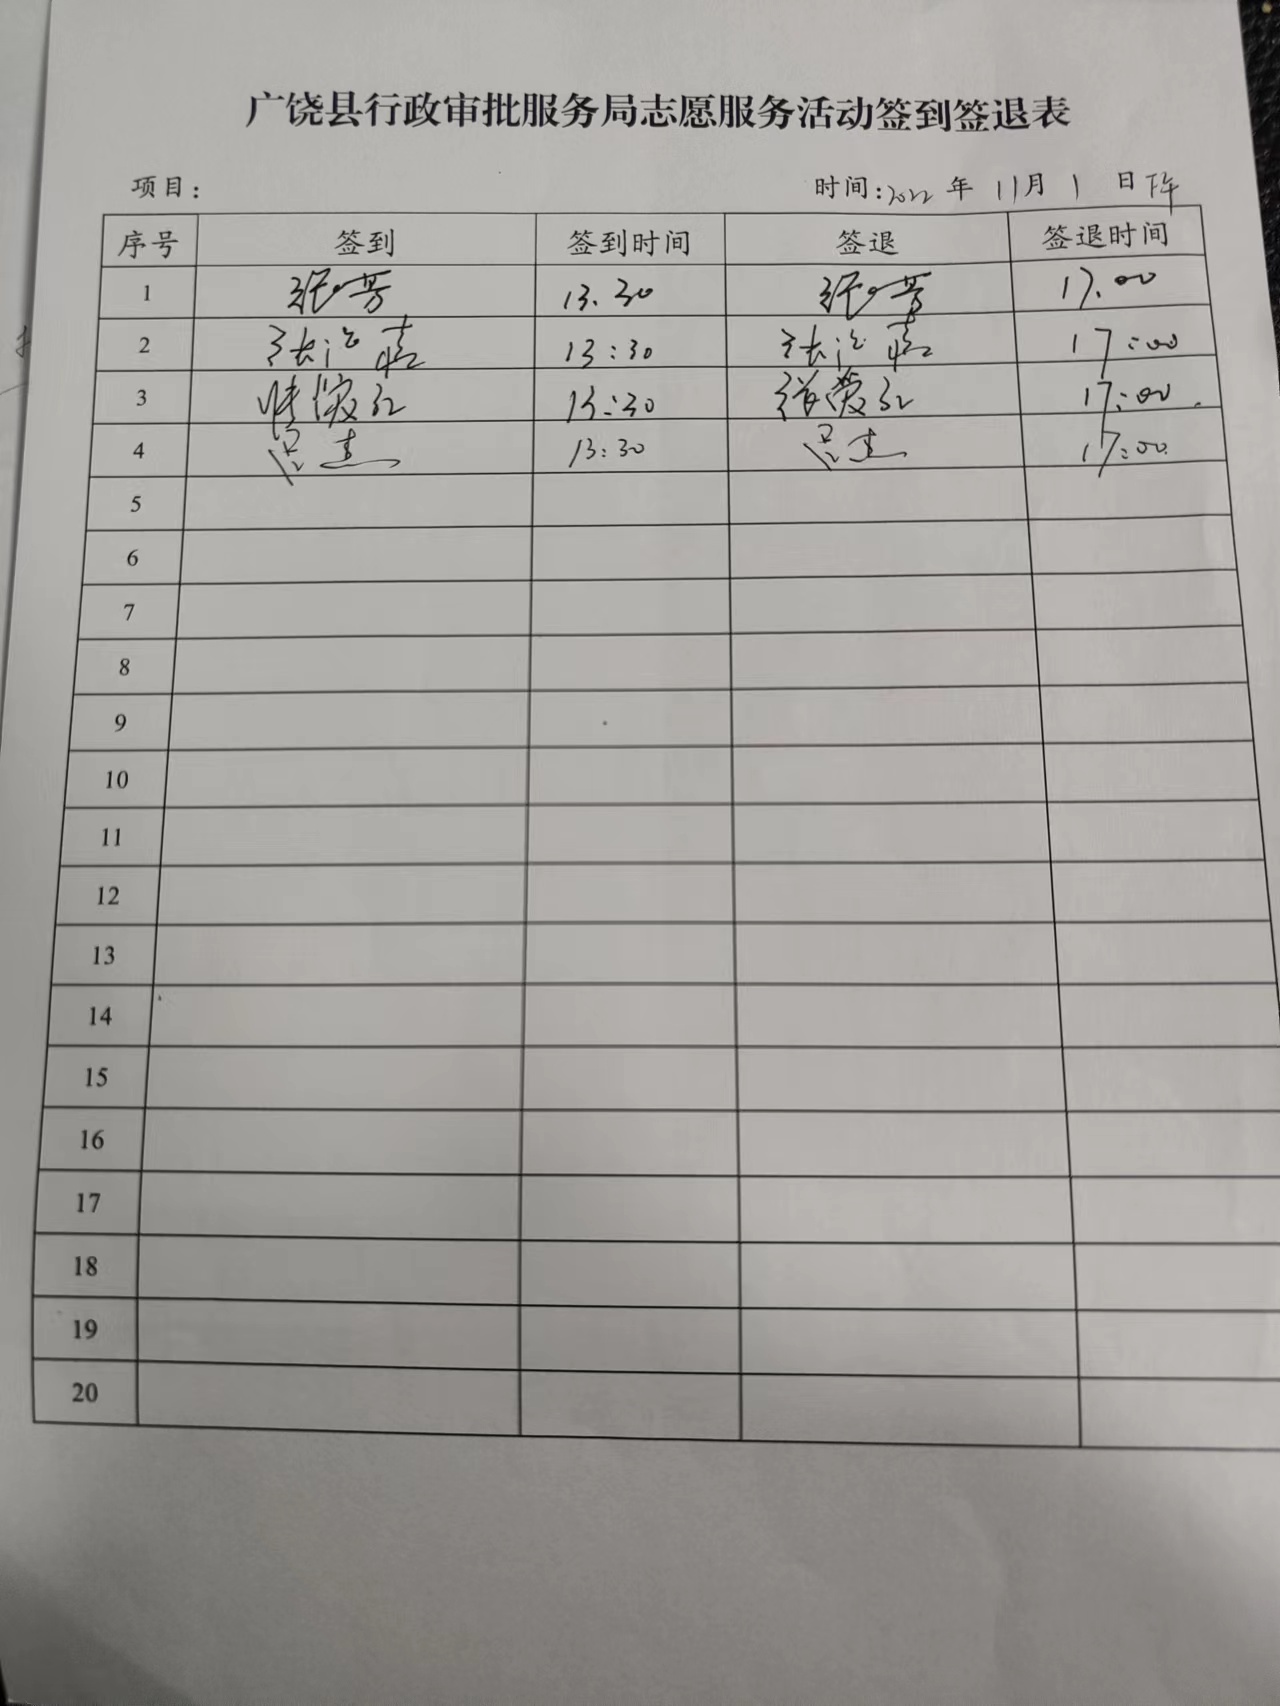 广饶县行政审批服务局志愿服务活动签到签退表
项目: 时间:2022 年 11月 1 日 下午
序号 签到 签到时间 签退 签退时间
1 13.30 17.00
2 13:30 17:00
3 13:30 17:00.
4 吕杰 13:30 吕杰 17:00.
5
6
7
8
9
10
11
12
13
14
15
16
17
18
19
20